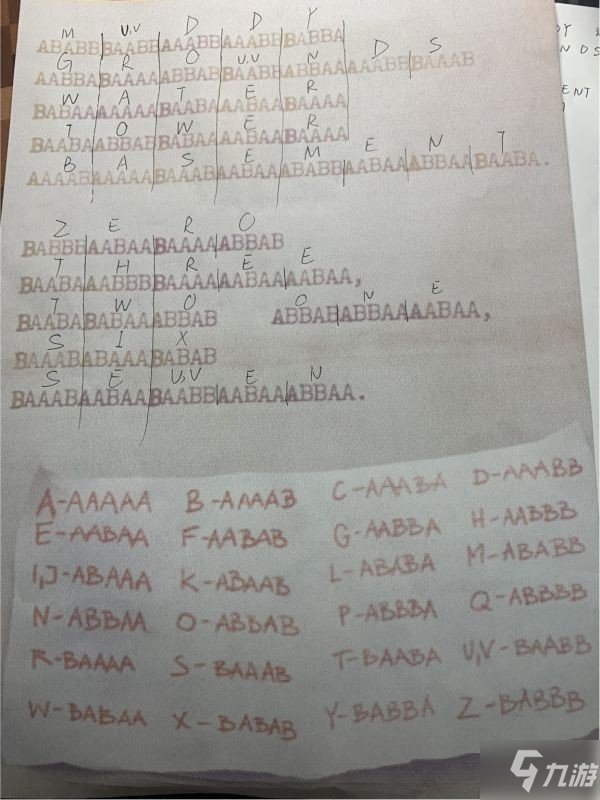 M U,V D D Y
ABABBBAABBAAABBAAABBBABBA
G R O U,V N D S
AABBABAAAAABBABBAABBABBAAAAABBBAAAB
W A T E R
BABAAAAAAABAABAAABAABAAAA
T O W E R
BAABAABBABBABAAAABAABAAAA
B A S E M E N T
AAAABAAAAABAAABAABAAABABBAABAAABBAABAABA.
Z E R O
BABBBAABAABAAAAABBAB
T H R E E
BAABAAABBBBAAAAAABAAAABAA,
T W O O N E
BAABABABAAABBAB ABBABABBAAAABAA,
S I X
BAAABABAAABABAB
S E U,V E N
BAAABAABAABAABBAABAAABBAA.
A-AAAAA B-AAAAB C-AAABA D-AAABB
E-AABAA F-AABAB G-AABBA H-AABBB
I,J-ABAAA K-ABAAB L-ABABA M-ABABB
N-ABBAA O-ABBAB P-ABBBA Q-ABBBB
R-BAAAA S-BAAAB T-BAABA U,V-BAABB
W-BABAA X-BABAB Y-BABBA Z-BABBB
DY
NDS
ENT
九游